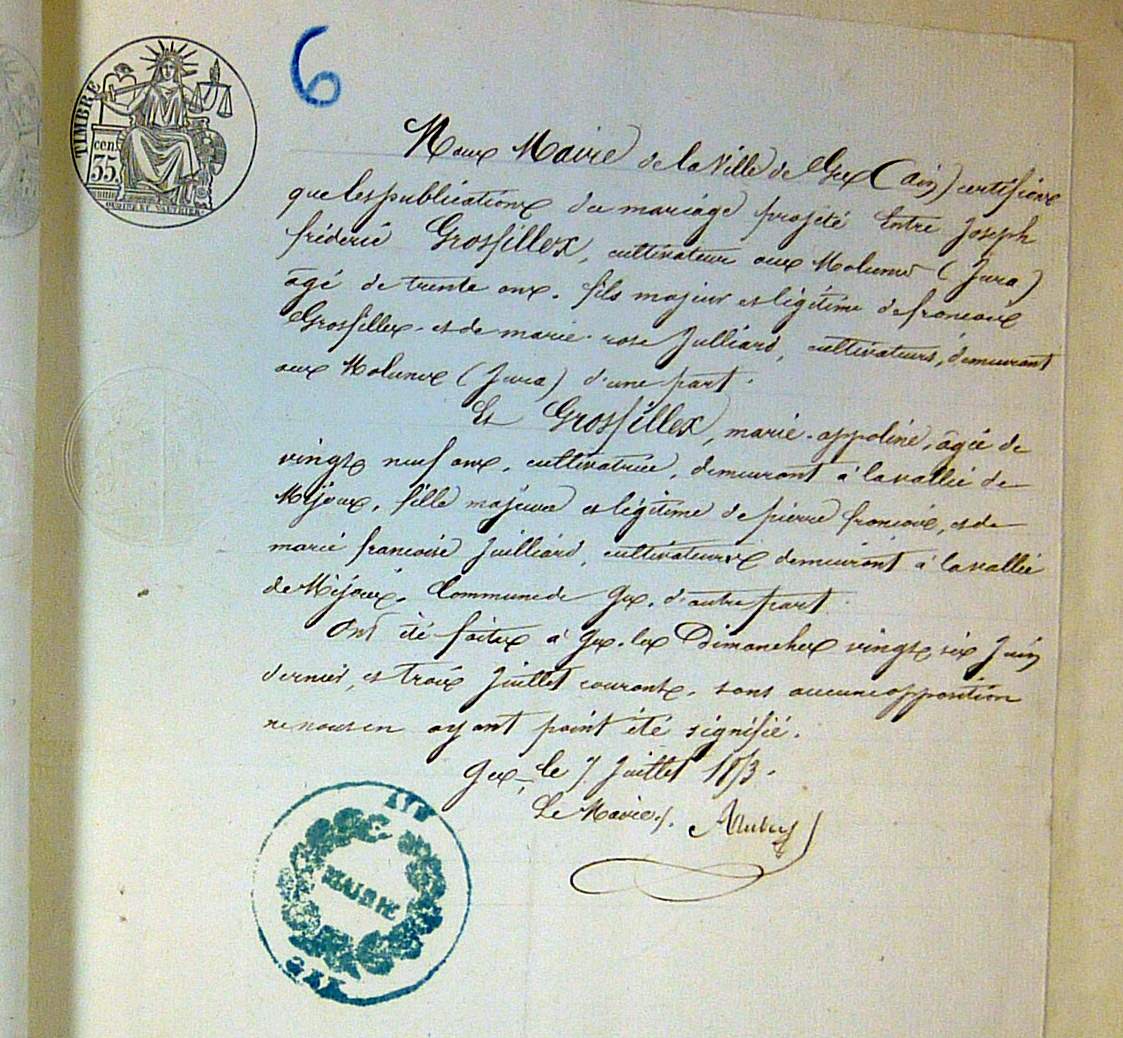 TIMBRE
cen.
35.
OUDINÉ ET VAUTHIER
6
Nous Maire de la Ville de Gex (ain) certifions
que les publications du mariage projeté Entre Joseph
fréderic Grosfillex, cultivateur aux Molunes (Jura)
âgé de trente ans, fils majeur et légitime de francois
Grosfillex et de marie rose Julliard, cultivateurs, demeurant
aux Molunes (Jura) d'une part.
Et Grosfillex, marie appoline, âgée de
vingt neuf ans, cultivatrice, demeurant à la vallée de
Mijoux, fille majeure et légitime de pierre francois, et de
marie francoise Juilliard, cultivateurs demeurant à la vallée
de Mijoux, Commune de Gex, d'autre part.
Ont été faites à Gex, les Dimanches vingt six Juin
dernier, et trois Juillet courant, sans aucune opposition
ne nous en ayant point été signifié.
Gex, le 7 Juillet
Le Maire,
AIN
MAIRIE
GEX